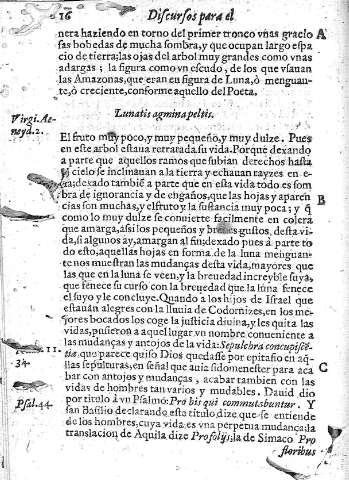 16 Discursos para el
nera haziendo en torno del primer tronco vnas gracio A
sas bobedas de mucha sombra, y que ocupan largo espa
cio de tierra; las ojas del arbol muy grandes como vnas
adargas; la figura como vn escudo, de los que vsauan
las Amazonas, que eran en figura de Luna, ò menguan
te, ò creciente, conforme aquello del Poeta.
Virgi. Ae-
neyd. 2.
Lunatis agmina peltis.
El fruto muy poco, y muy pequeño, y muy dulze. Pues
en este arbol estaua retratada su vida. Porque dexando
a parte que aquellos ramos que subian derechos hasta
el cielo se inclinauan a la tierra y echauan rayzes en e-
ra; dexado tambiē a parte que en esta vida todo es som
bra de ignorancia y de engaños, que las hojas y aparen B
cias son muchas, y el fruto y la sustancia muy poca; y q̄
como lo muy dulze se conuierte facilmente en colera
que amarga, assi los pequeños y breues gustos, desta vi-
da, si algunos ay, amargan al fin; dexado pues à parte to
do esto, aquellas hojas en forma de la luna menguan-
te nos muestran las mudanças desta vida, mayores que
las que en la luna se veen, y la breuedad increyble suya,
que fenece su curso con la breuedad que la luna fenece
el suyo y le concluye. Quando a los hijos de Israel que
estauan alegres con la lluuia de Codornizes, en los me-
jores bocados los coge la justicia diuina, y les quita las
vidas, pusieron a aquel lugar vn nombre conueniente a
las mudanças y antojos de la vida: Sepulchra concupiscē-
11. 34.
tia, que parece quiso Dios que dasse por epitafio en aq̄- C
llas sepulturas, en señal que auiẽdo menester para aca
bar con antojos y mudanças, acabar tambien con las
vidas de hombres tan varios y mudables. Dauid dio
Psal. 44.
por titulo à vn Psalmo: Pro his qui commutabuntur. Y
san Basilio declarando este titulo, dize que se entiende
de los hombres, cuya vida es vna perpetua mudança; la
translacion de Aquila dize Pro solijs; la de Simaco Pro
floribus